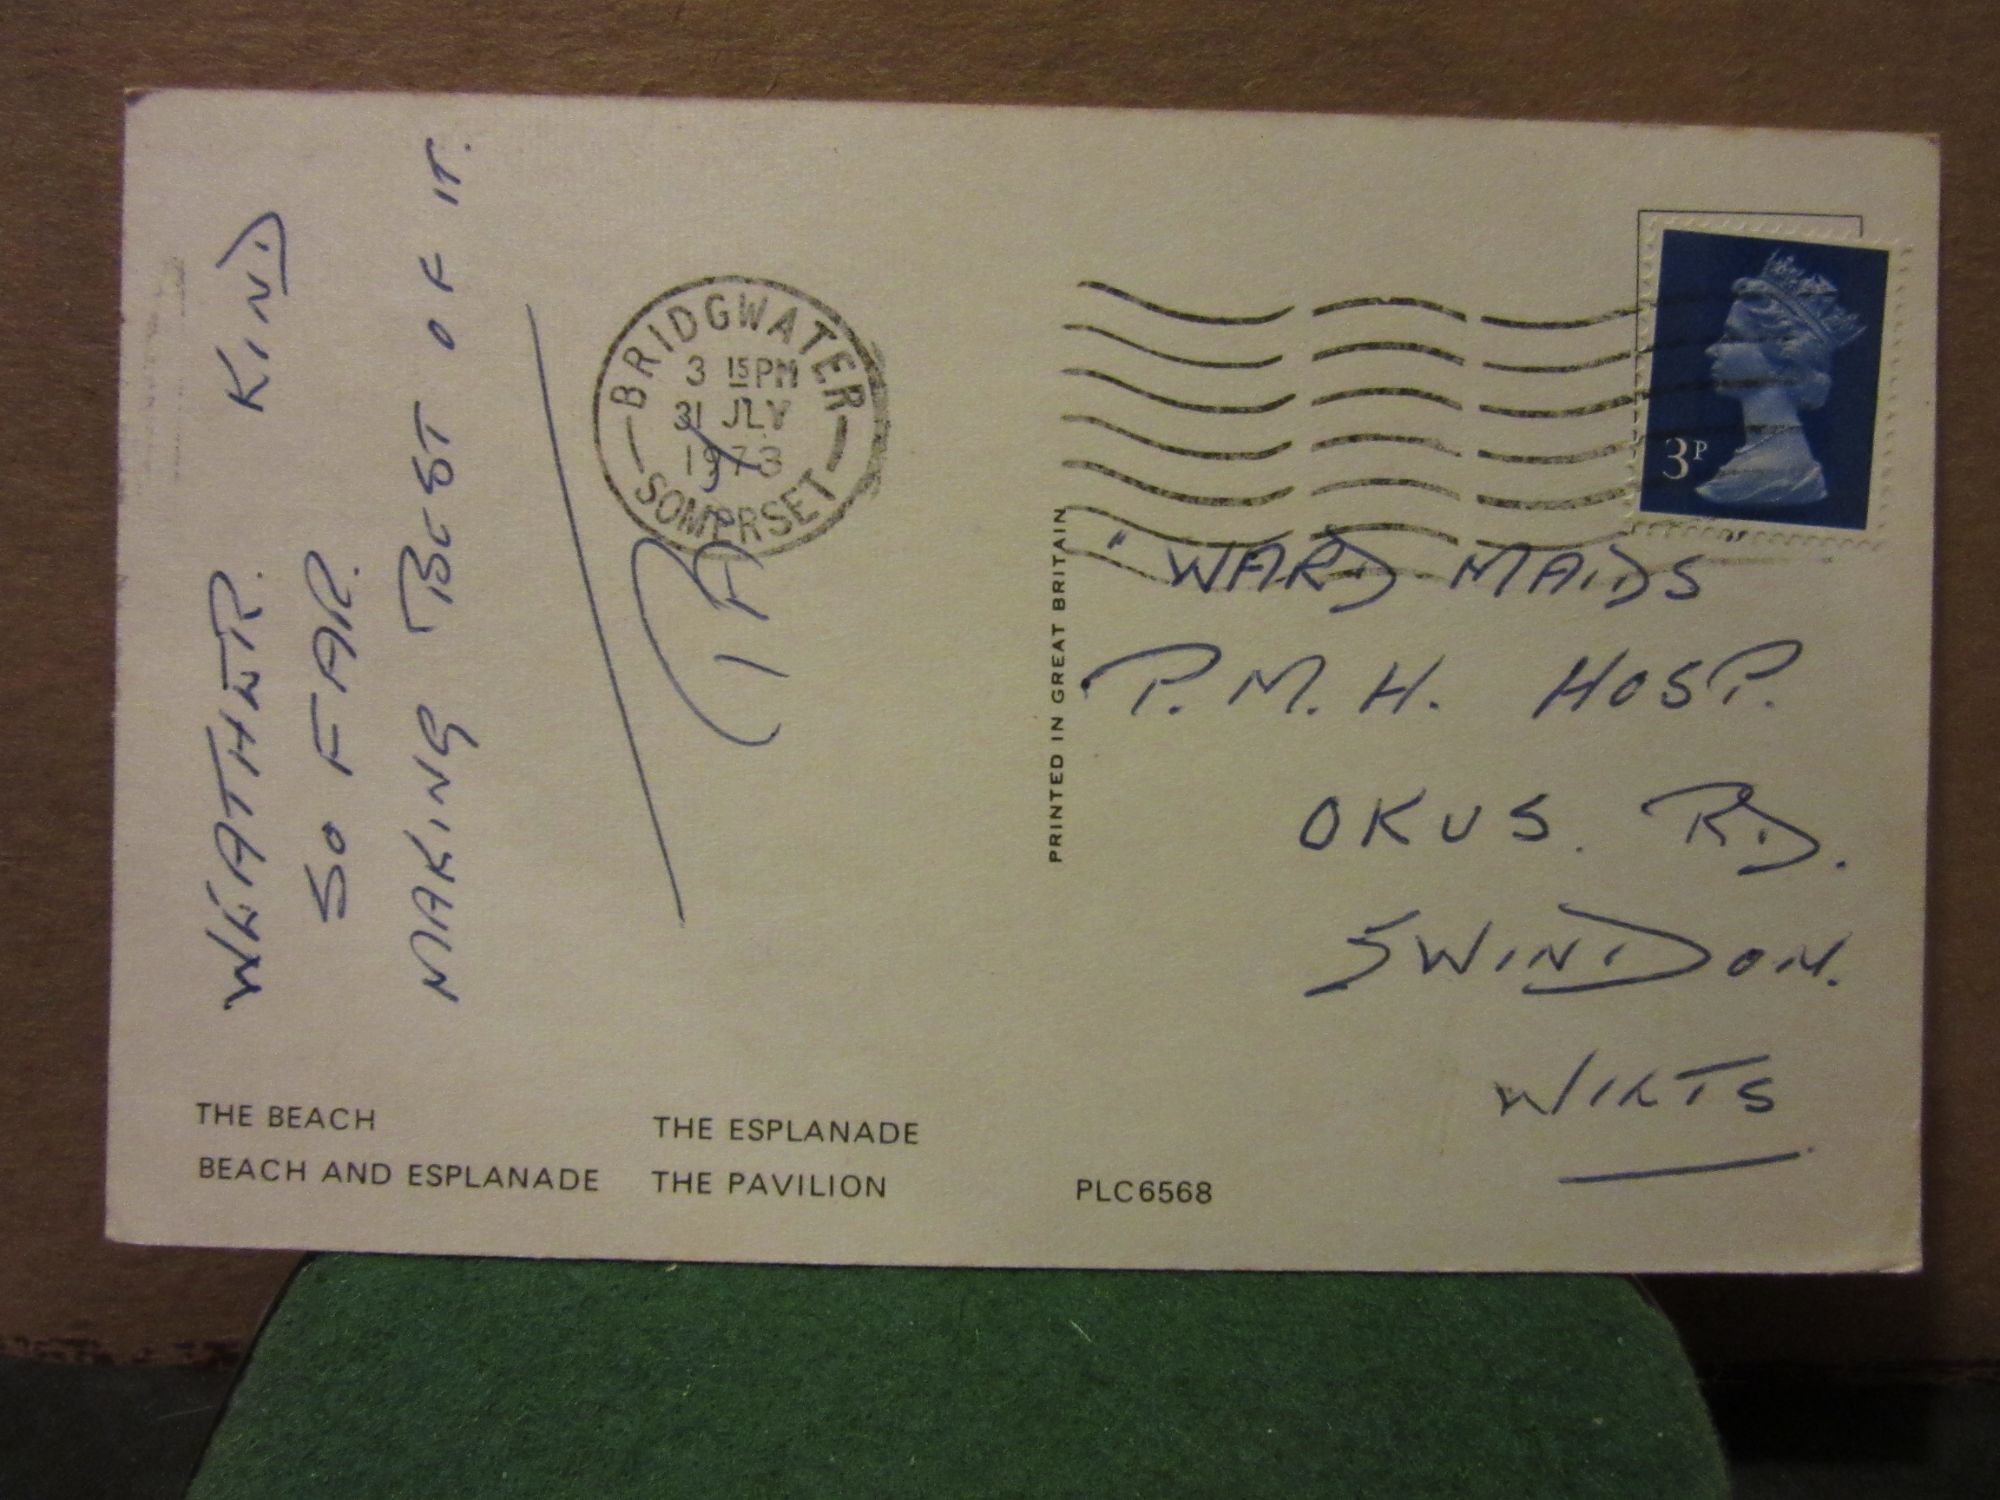 WEATHER. KIND
SO FAR.
MAKING BEST OF IT.
BRIDGWATER
3 15 PM
31 JLY
1973
SOMERSET
3P
PRINTED IN GREAT BRITAIN
"WARD MAIDS
P.M.H. HOSP.
OKUS. RD.
SWINDON.
WILTS
THE BEACH
BEACH AND ESPLANADE
THE ESPLANADE
THE PAVILION
PLC6568